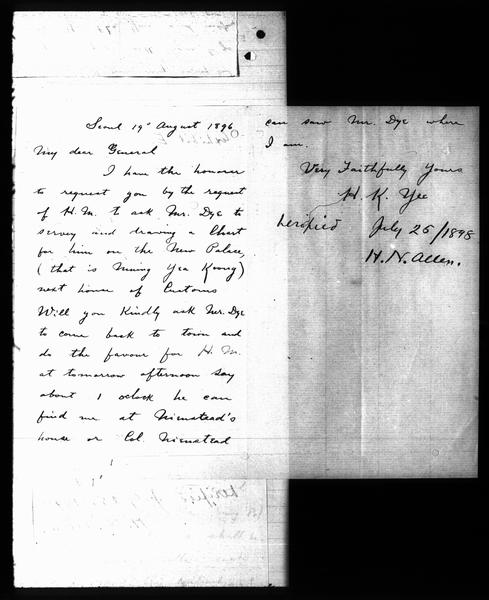 Seoul 19th August 1896
My dear General
I have the honover
to request you by the request
of H.M. to ask Mr. Dye to
survey and drawing a Chart
for him on the New Palace,
(that is Mining Yea Koong)
next house of Customs
Will you Kindly ask Mr. Dye
to come back to town and
do the favour for H.M.
at tomorrow afternoon say
about 1 oclock he can
find me at Nienstead's
house or Col. Nienstead
can saw Mr. Dye where
I am.
Very Faithfully Yours
H. K. Yee
Verified July 25/1898
H. N. Allen.